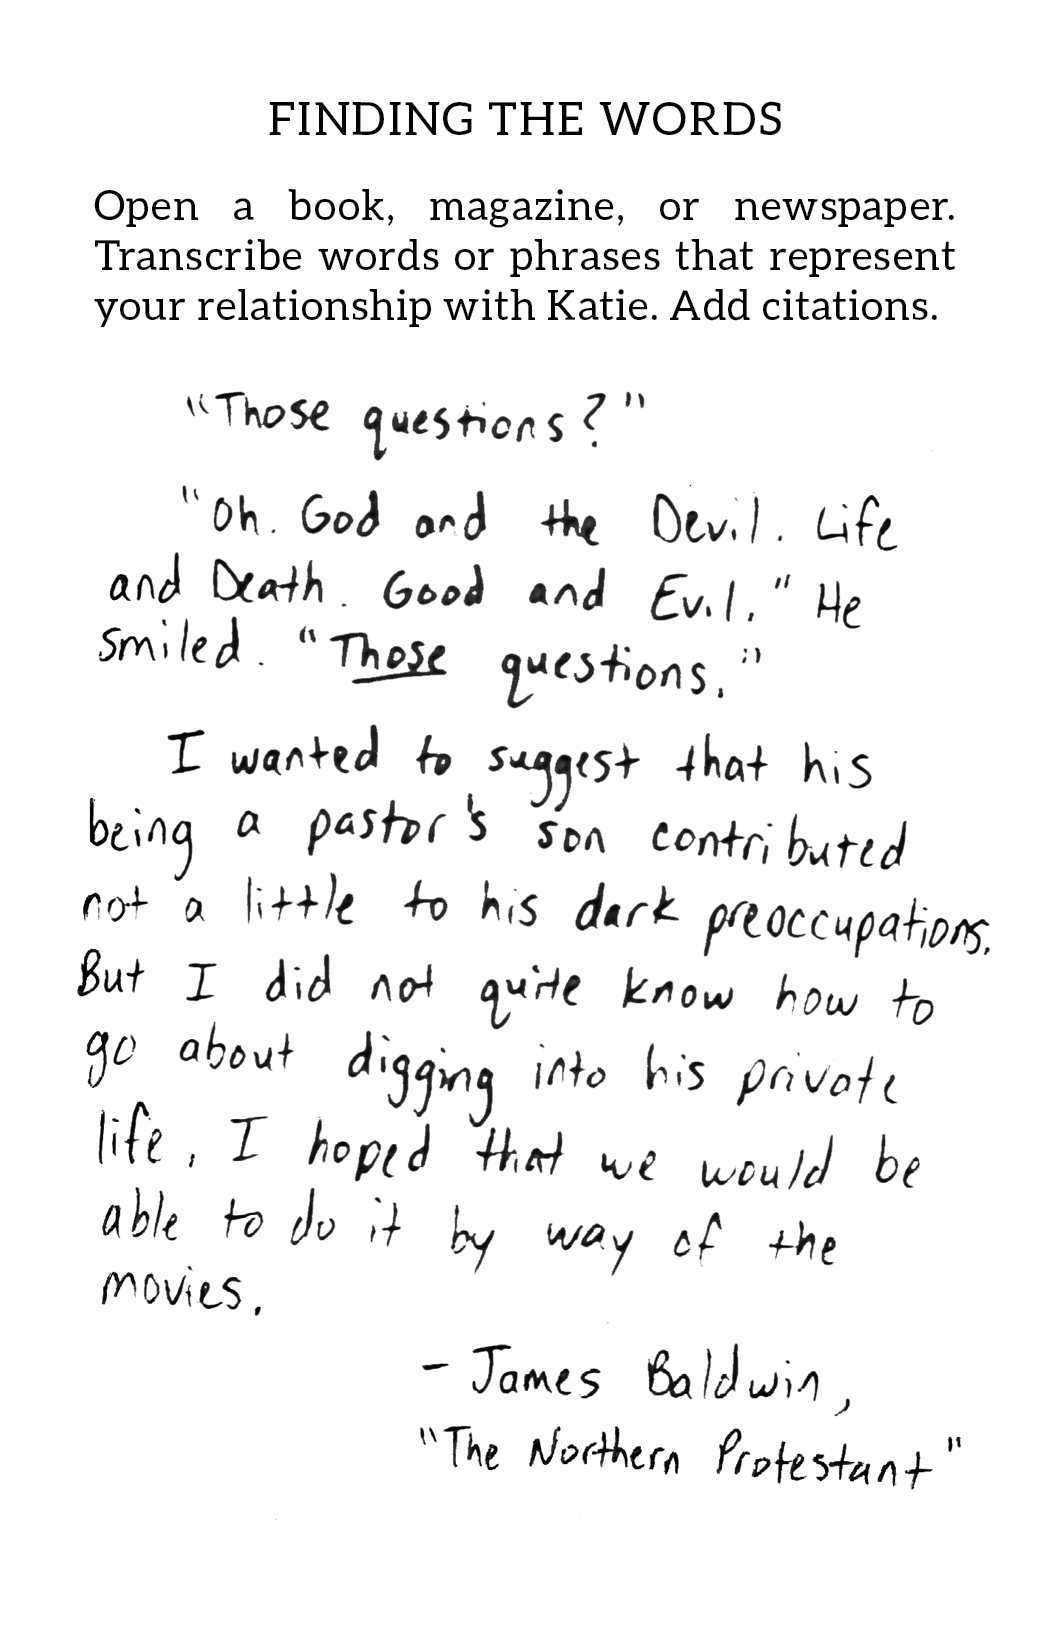 FINDING THE WORDS
Open a book, magazine, or newspaper.
Transcribe words or phrases that represent
your relationship with Katie. Add citations.
"Those questions?"
"Oh. God and the Devil. Life
and Death. Good and Evil." He
smiled. "Those questions."
I wanted to suggest that his
being a pastor's son contributed
not a little to his dark preoccupations.
But I did not quite know how to
go about digging into his private
life, I hoped that we would be
able to do it by way of the
movies.
- James Baldwin,
"The Northern Protestant"